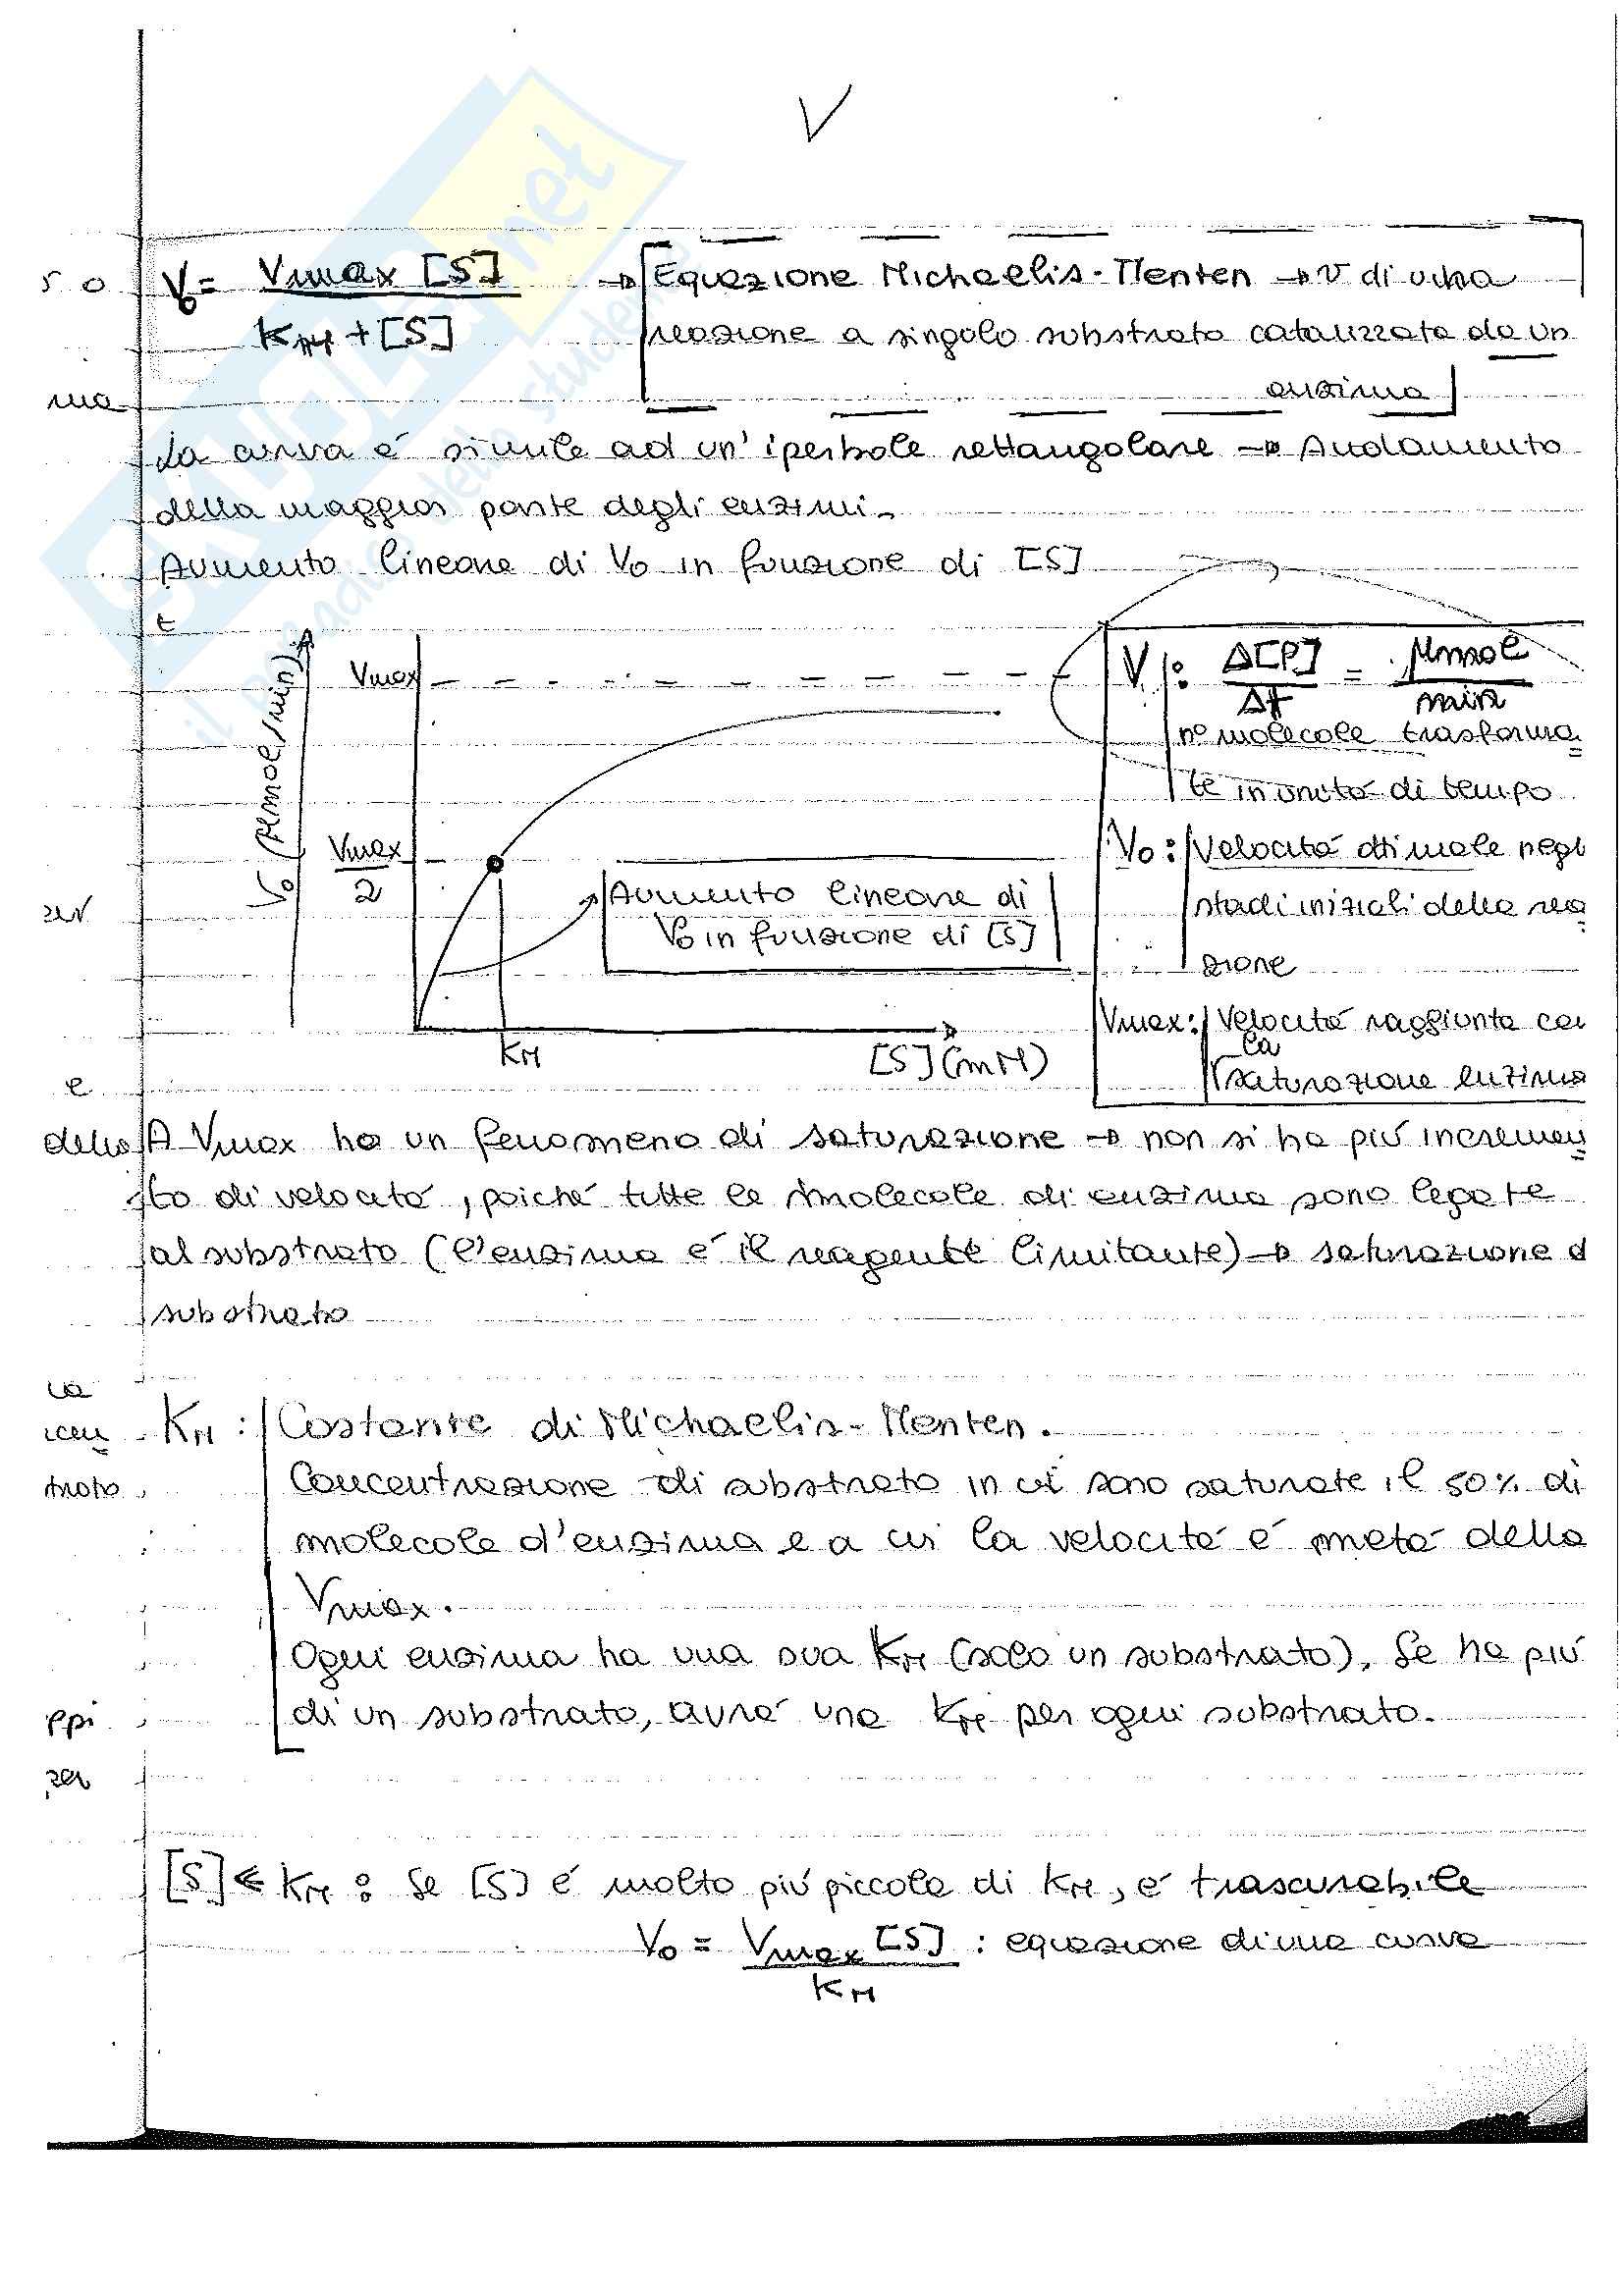 V
V₀ = Vmax [S] / KM + [S] → Equazione Michaelis-Menten → v di una
reazione a singolo substrato catalizzata da un
enzima
La curva é simile ad un'iperbole rettangolare → Andamento
della maggior parte degli enzimi.
Aumento lineare di V₀ in funzione di [S]
t
V₀ (μmol/min)
Vmax
Vmax / 2
Aumento lineare di
V₀ in funzione di [S]
KM
[S] (mM)
V : Δ[P] / Δt = μmol / min
n° molecole trasforma=
te in unitá di tempo
V₀ : Velocitá ottimale negli
stadi iniziali della rea
zione
Vmax : Velocitá raggiunta con
la
saturazione enzima
A Vmax ha un fenomeno di saturazione → non si ha piú incremen=
to di velocitá, poiché tutte le molecole di enzima sono legate
al substrato (l'enzima é il reagente limitante) → saturazione d
substrato
KM : Costante di Michaelis-Menten.
Concentrazione di substrato in cui sono saturate il 50% di
molecole d'enzima e a cui la velocitá é metá della
Vmax.
Ogni enzima ha una sua KM (solo un substrato). Se ha piú
di un substrato, avrá una KM per ogni substrato.
[S] << KM : Se [S] é molto piú piccola di KM, é trascurabile
V₀ = Vmax [S] / KM : equazione di una curva
s o
ma
zen
e
della
ca
icen
trato
ppi
zen
il portale dello studente
.net